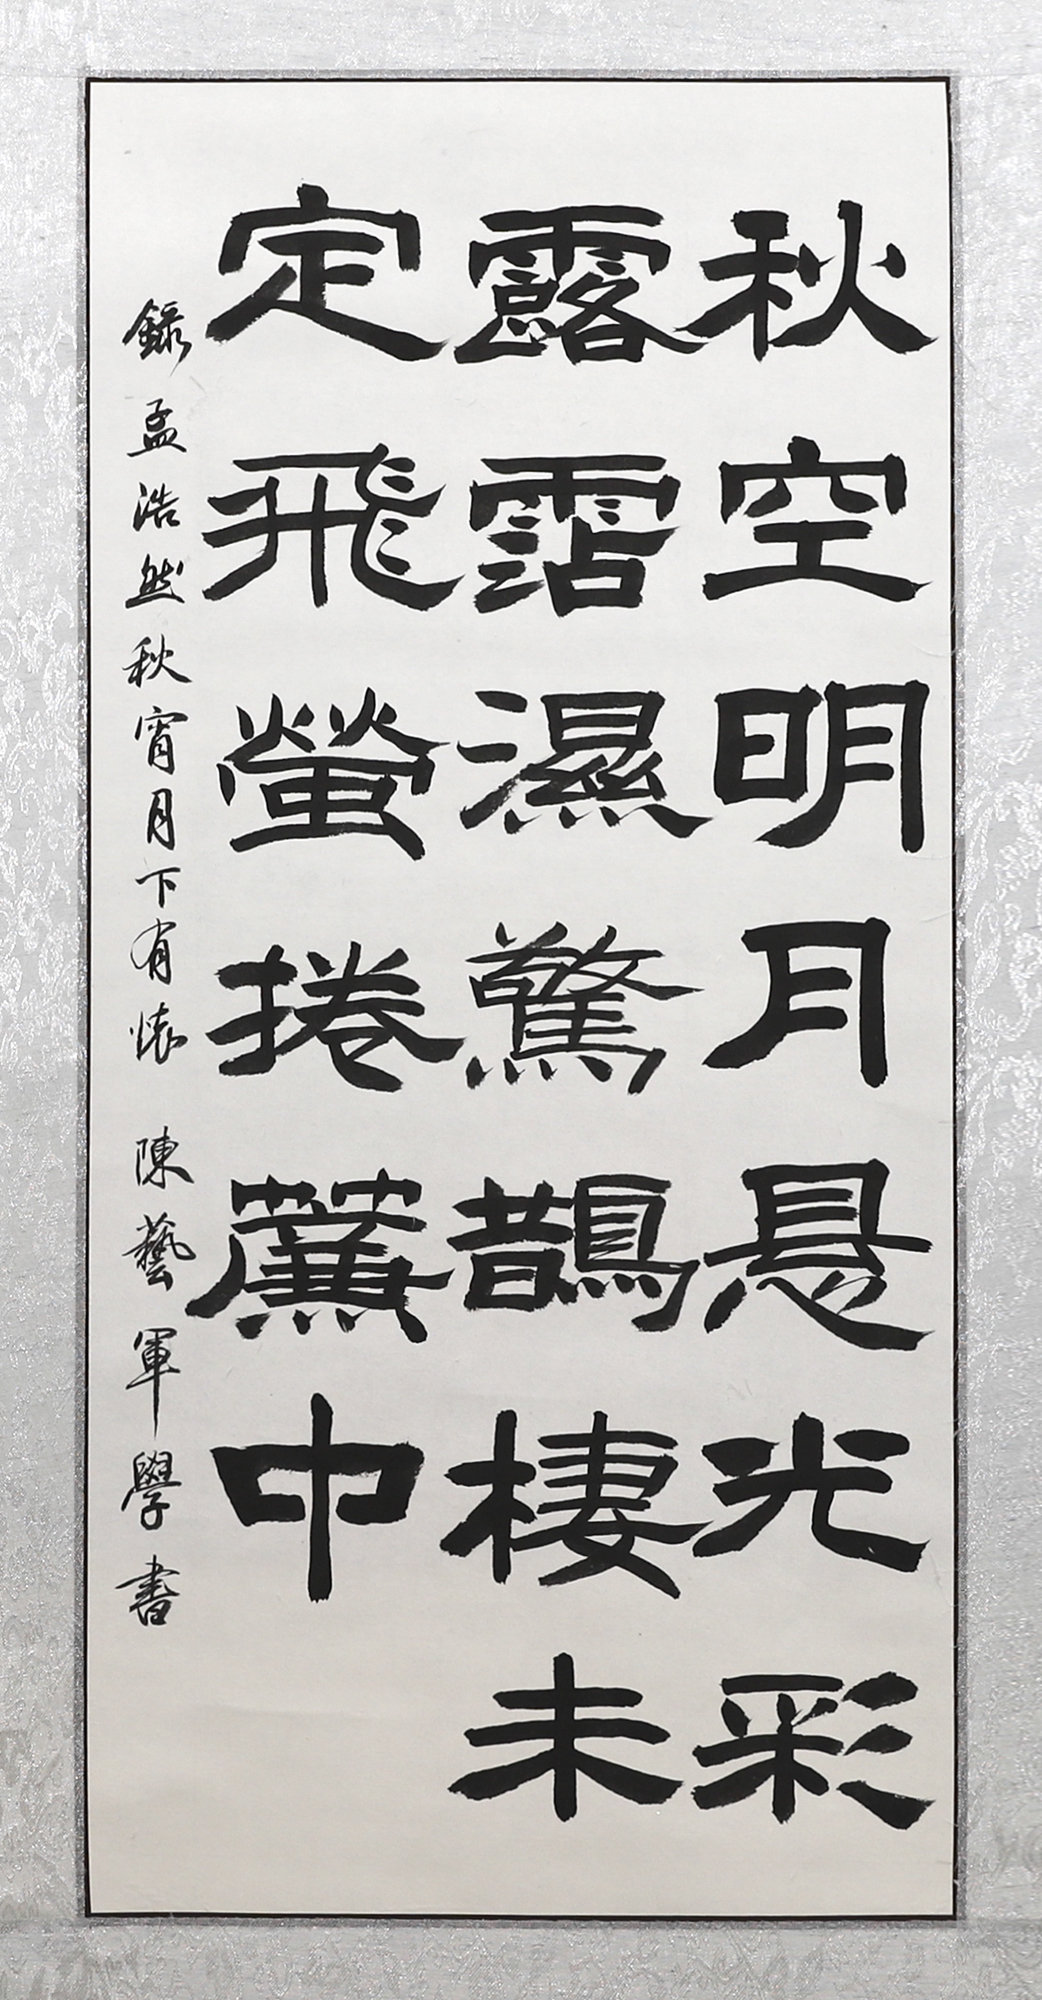 秋空明月悬光彩
露霑濕驚鵲棲未
定飛螢捲簾巾
錄孟浩然秋宵月下有懷 陳藝軍學書